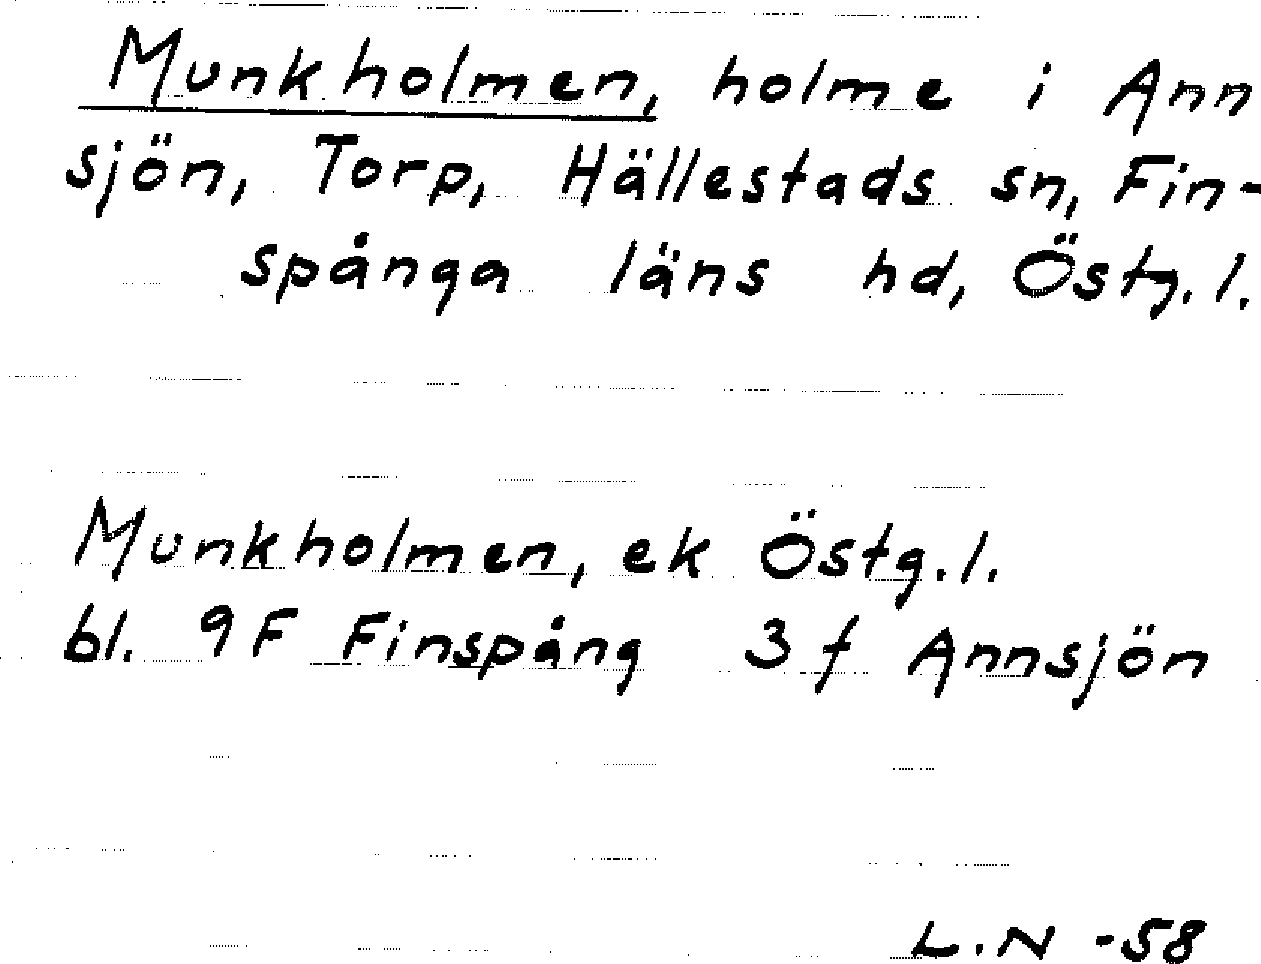 Munkholmen, holme i Ann
sjön, Torp, Hällestads sn, Fin-
spånga läns hd, Östg. l.
Munkholmen, ek Östg. l.
bl. 9 F Finspång 3 f Annsjön
L.N -58